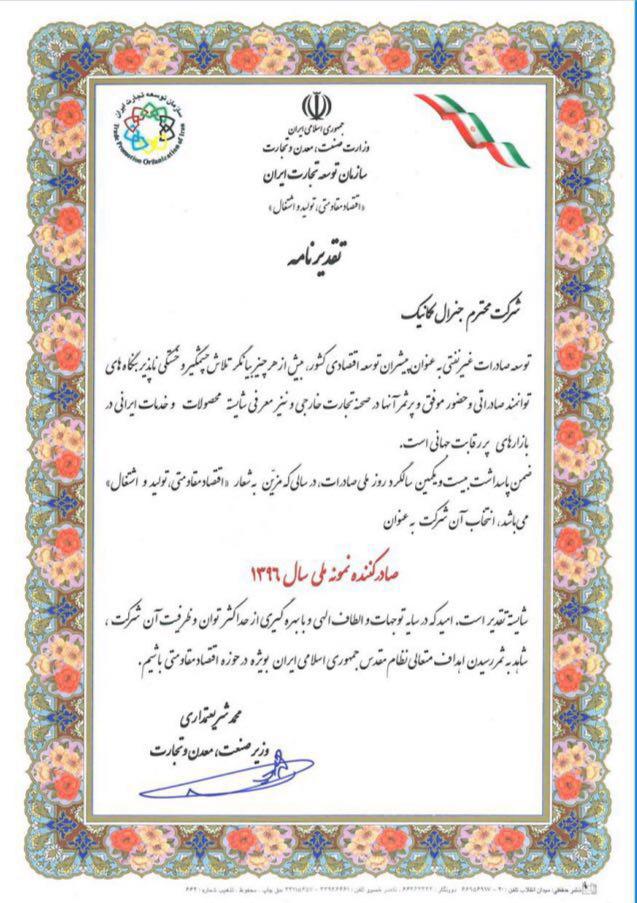 سازمان توسعه تجارت ایران
Trade Promotion Organization of Iran
جمهوری اسلامی ایران
وزارت صنعت، معدن و تجارت
سازمان توسعه تجارت ایران
«اقتصاد مقاومتی، تولید و اشتغال»
تقدیرنامه
شرکت محترم جنرال مکانیک
توسعه صادرات غیرنفتی به عنوان پیشران توسعه اقتصادی کشور، بیش از هر چیز بیانگر تلاش چشمگیر و خستگی ناپذیر بنگاه های
توانمند صادراتی و حضور موفق و پرثمر آنها در صحنه تجارت خارجی و نیز معرفی شایسته محصولات و خدمات ایرانی در
بازارهای پر رقابت جهانی است.
ضمن پاسداشت بیست و یکمین سالگرد روز ملی صادرات، در سالی که مزیّن به شعار «اقتصاد مقاومتی، تولید و اشتغال»
می باشد، انتخاب آن شرکت به عنوان
صادرکننده نمونه ملی سال ۱۳۹۶
شایسته تقدیر است. امید که در سایه توجهات و الطاف الهی و با بهره گیری از حداکثر توان و ظرفیت آن شرکت،
شاهد به ثمر رسیدن اهداف متعالی نظام مقدس جمهوری اسلامی ایران بویژه در حوزه اقتصاد مقاومتی باشیم.
محمد شریعتمداری
وزیر صنعت، معدن و تجارت
نشر حقیقی: میدان انقلاب تلفن: دورنگار: ناصر خسرو تلفن: حق چاپ محفوظ تذهیب شماره: